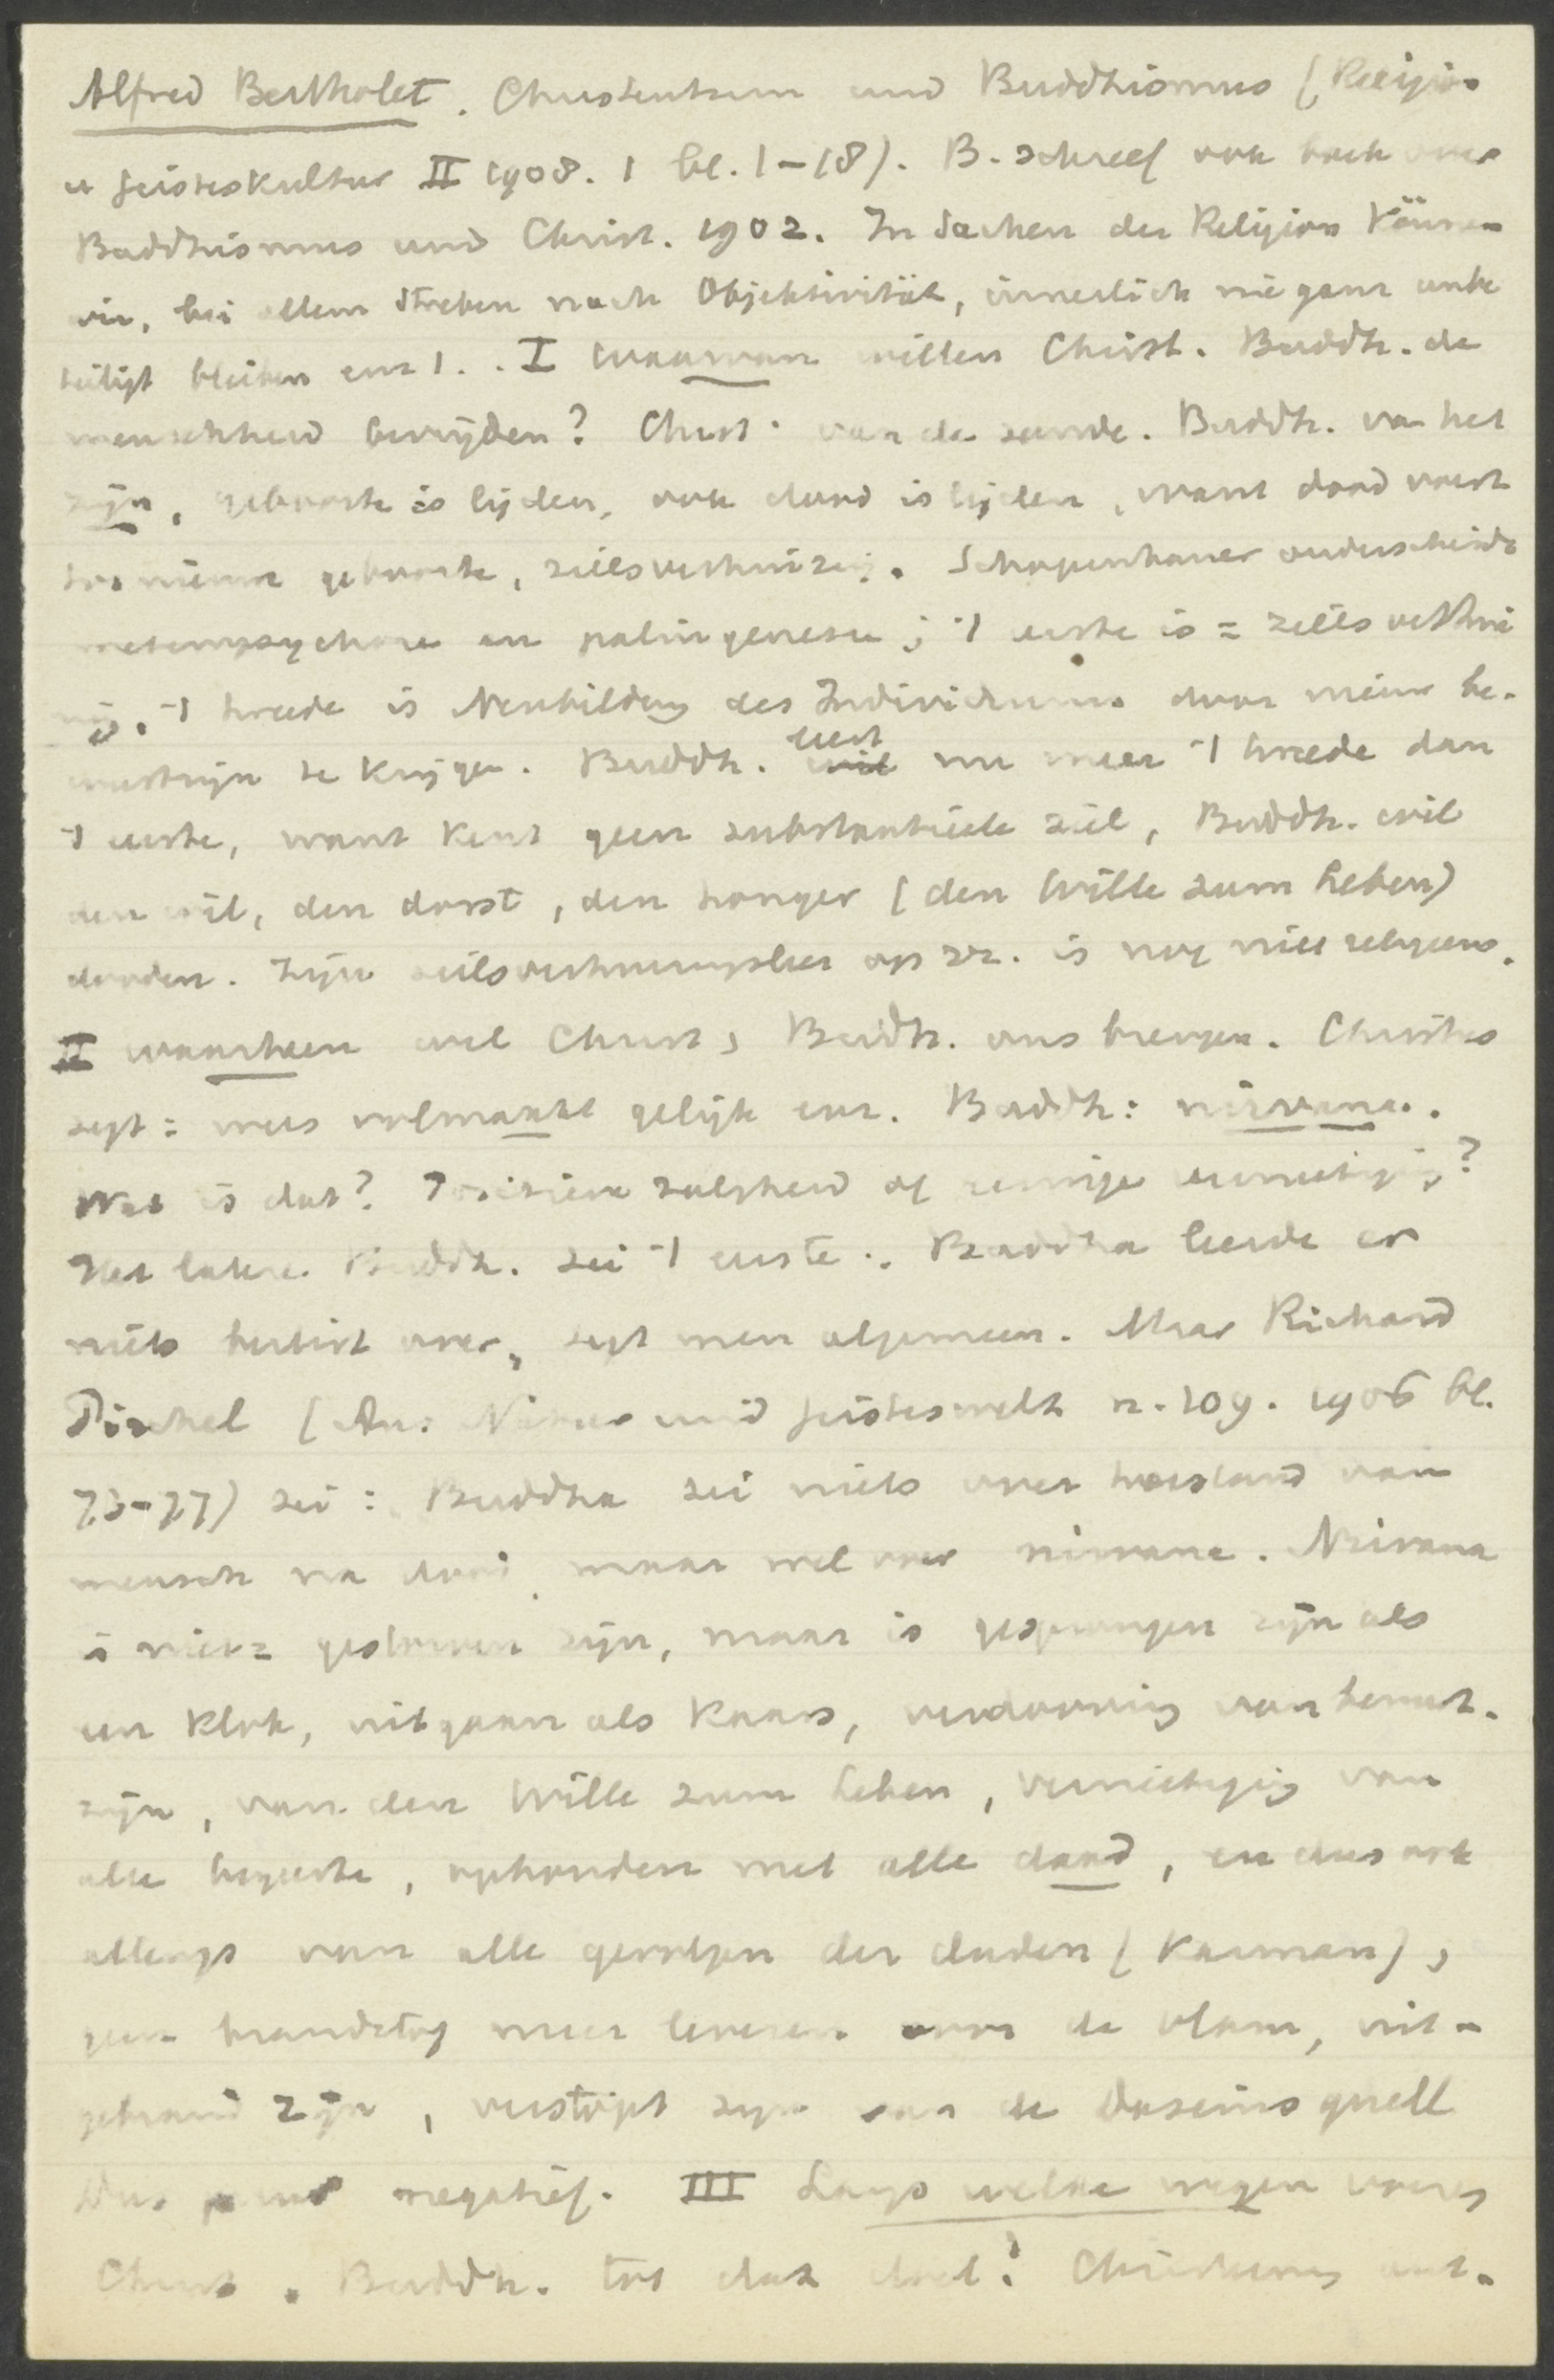 Alfred Bertholet. Christentum und Buddhismus (Religion
u Geisteskultur II 1908. 1 bl. 1-18). B. schreef ook boek over
Buddhismus und Christ. 1902. In Sachen der Religion können
wir, bei allem Streben nach Objektivität, innerlich nie ganz unbe
teiligt bleiben enz 1.. I waarvan willen Christ. Buddh. de
menschheid bevrijden? Christ. van de zonde. Buddh. van het
zijn, geboorte is lijden, ook dood is lijden, want dood voert
tot nieuwe geboorte, zielsverhuizing. Schopenhauer onderscheidt
metempsychose en palingenesie; 't eerste is = zielsverhui
zing. 't tweede is Neubildung des Individuums door nieuw be-
wustzijn te krijgen. Buddh. wil leert nu meer 't tweede dan
't eerste, want kent geen substantieele ziel, Buddh. wil
den wil, den dorst, den honger (den Wille zum Leben)
dooden. Zijn zielsverhuizingsleer op zz. is nog niet religieus.
II waarheen wil Christ, Buddh. ons brengen. Christus
zegt: wees volmaakt gelijk enz. Buddh: nirvana.
Wat is dat? Positieve zaligheid of eenige vernietiging?
Het latere Buddh. zei 't eerste. Buddha leerde er
niets beslist over, zegt men algemeen. Maar Richard
Pischel (Aus Natur und Geisteswelt n. 109. 1906 bl.
73-77) zei: Buddha zei niets over toestand van
mensch na dood, maar wel over nirvana. Nirvana
is niet = gestorven zijn, maar is gesprongen zijn als
een klok, uitgaan als kaars, verdooving van bewust-
zijn, van den Wille zum Leben, vernietiging van
alle begeerte, ophouden met alle daad, en dus ook
allengs van alle gevolgen der daden (Karman),
geen brandstof meer leveren voor de vlam, uit-
gebrand zijn, verstopt zijn van de Daseinsquell
Dus puur negatief. III Langs welke wegen voeren
Christ. Buddh. tot dat doel? Christendom ant-